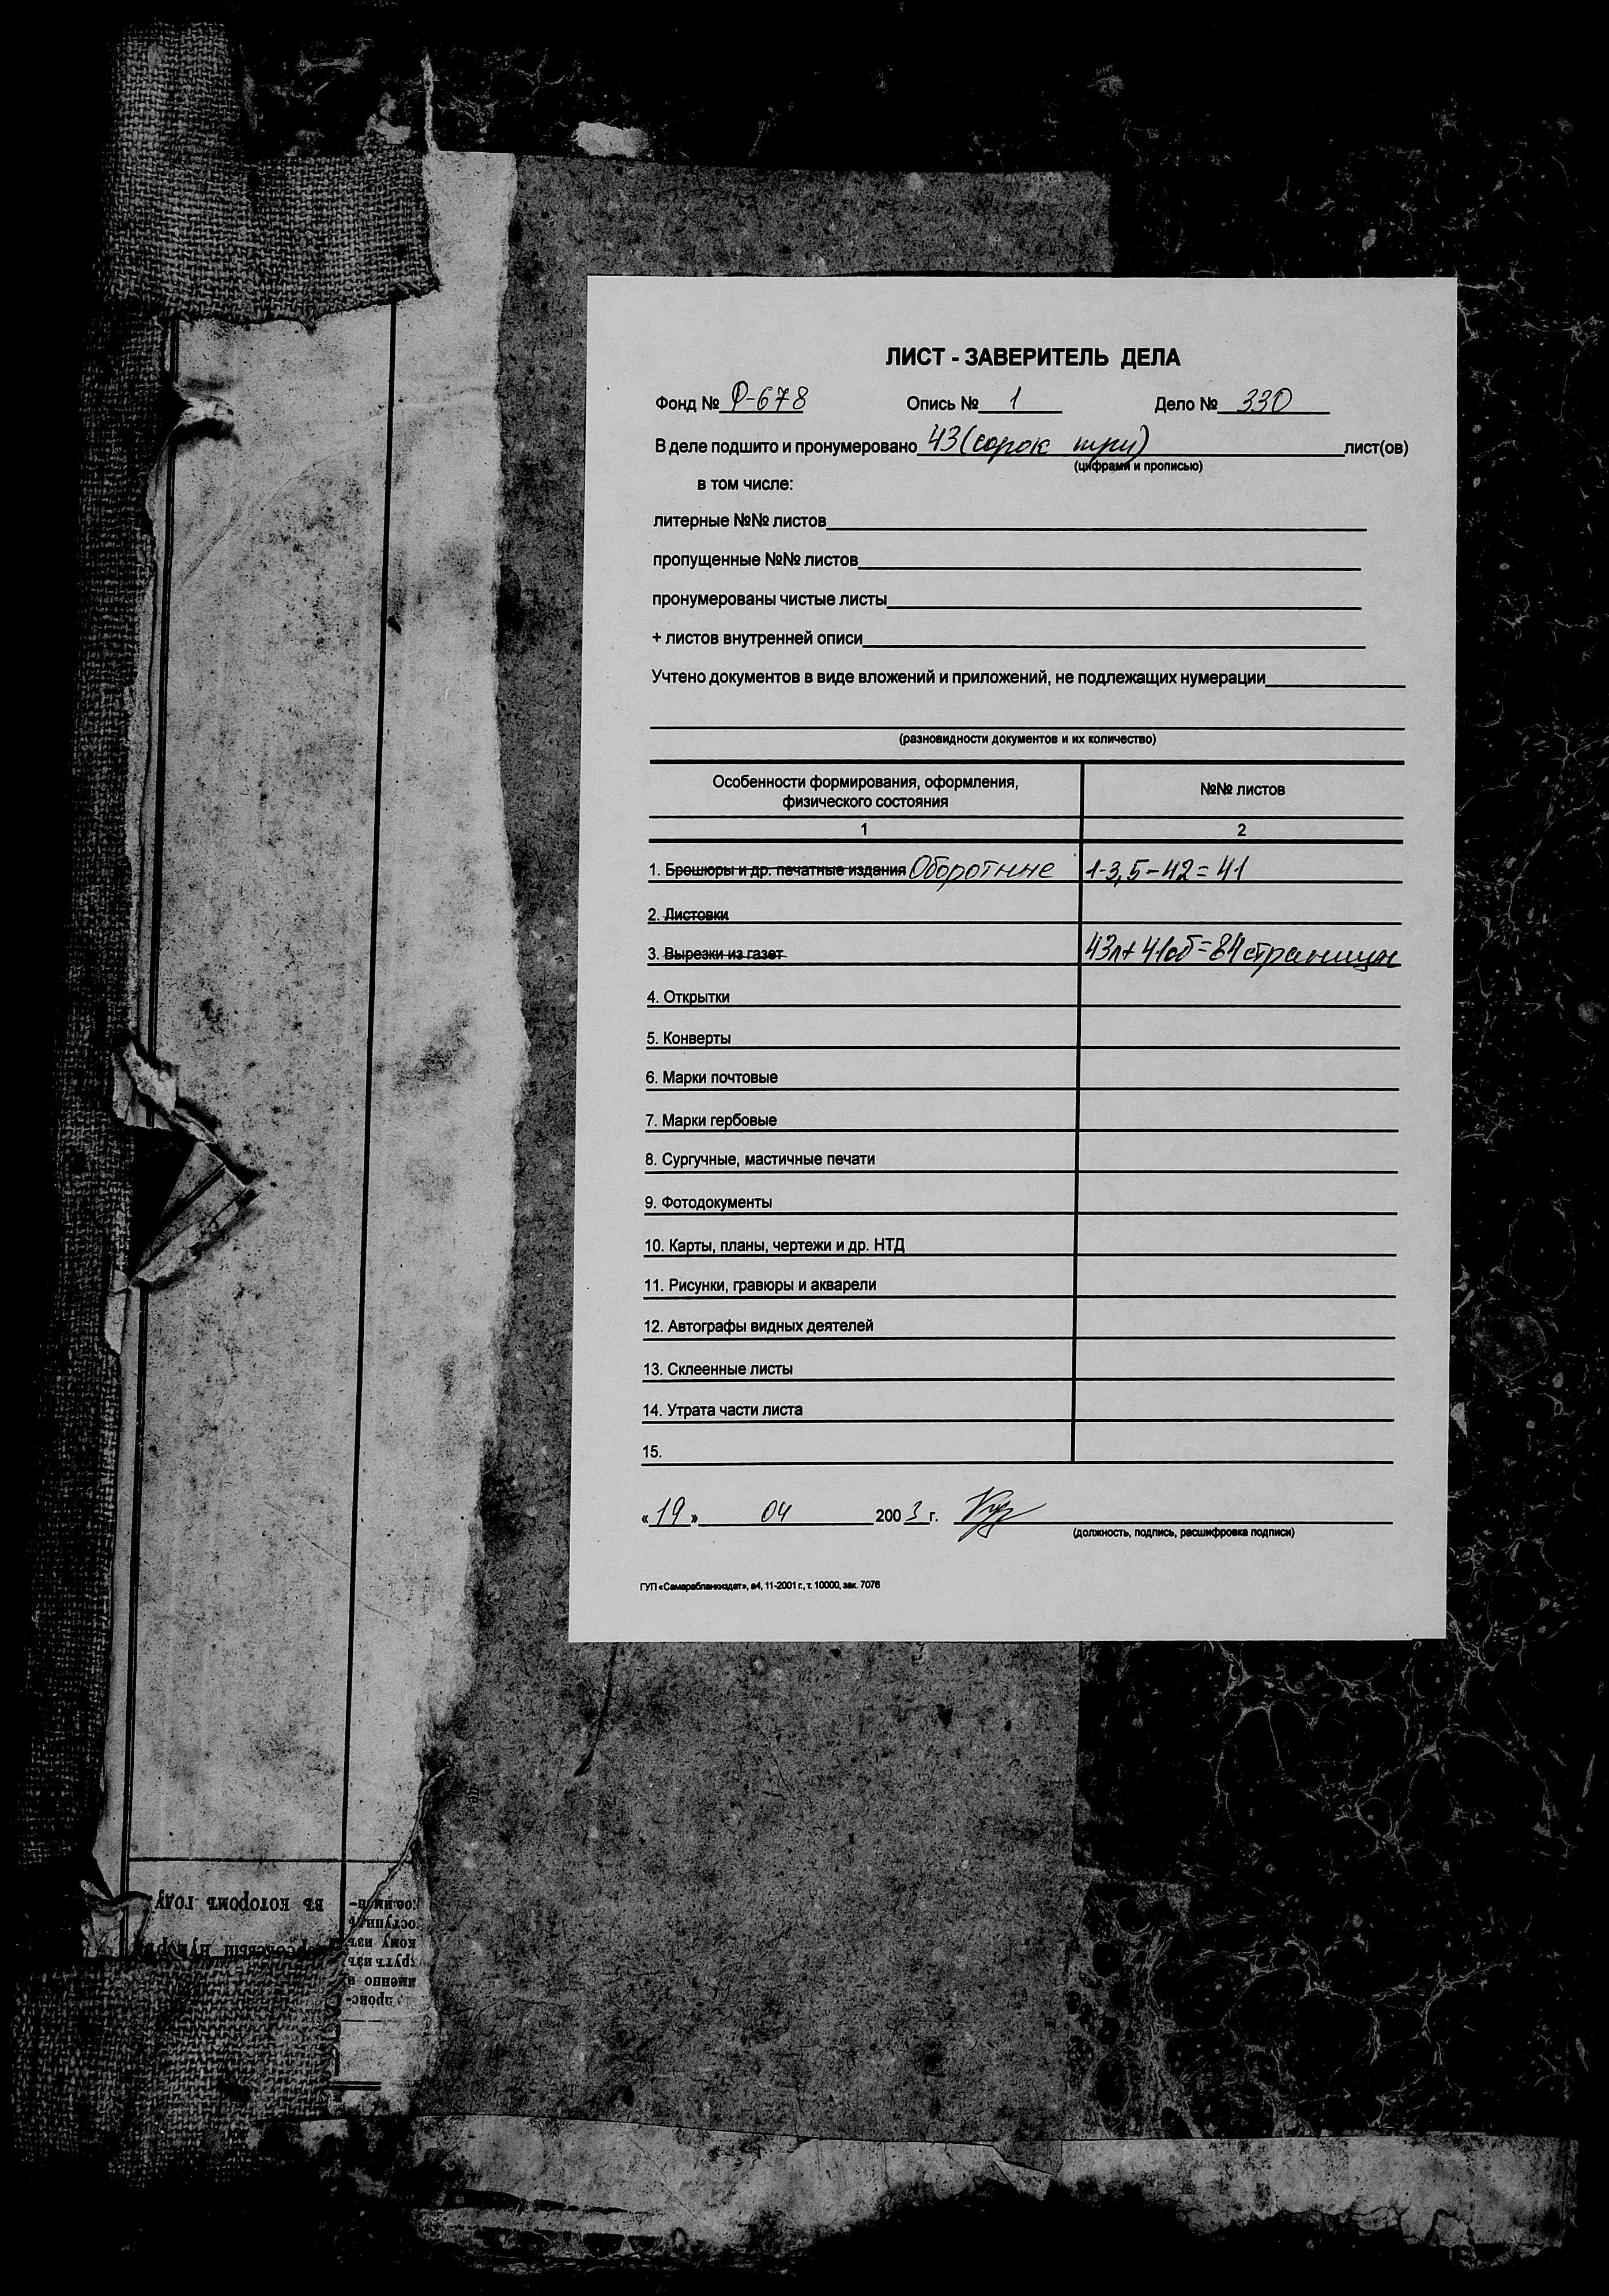 ЛИСТ - ЗАВЕРИТЕЛЬ ДЕЛА
Фонд № Ф-678 Опись № 1 Дело № 330
В деле подшито и пронумеровано 43 (сорок три) лист(ов)
(цифрами и прописью)
в том числе:
литерные №№ листов
пропущенные №№ листов
пронумерованы чистые листы
+ листов внутренней описи
Учтено документов в виде вложений и приложений, не подлежащих нумерации
(разновидности документов и их количество)
Особенности формирования, оформления, №№ листов
физического состояния
1 2
1. Брошюры и др. печатные издания Оборотные 1-3,5-42=41
2. Листовки
3. Вырезки из газет 43л+41об=84 страницы
4. Открытки
5. Конверты
6. Марки почтовые
7. Марки гербовые
8. Сургучные, мастичные печати
9. Фотодокументы
10. Карты, планы, чертежи и др. НТД
11. Рисунки, гравюры и акварели
12. Автографы видных деятелей
13. Склеенные листы
14. Утрата части листа
15.
«19» 04 2003 г.
(должность, подпись, расшифровка подписи)
ГУП «Самарабланкиздат», а4, 11-2001 г., т. 10000, зак. 7076
въ которомъ году
кому изъ
именно